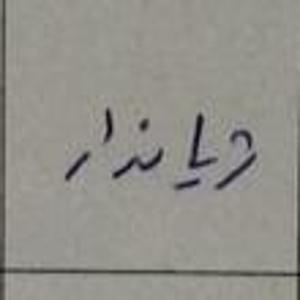 ژیاندار